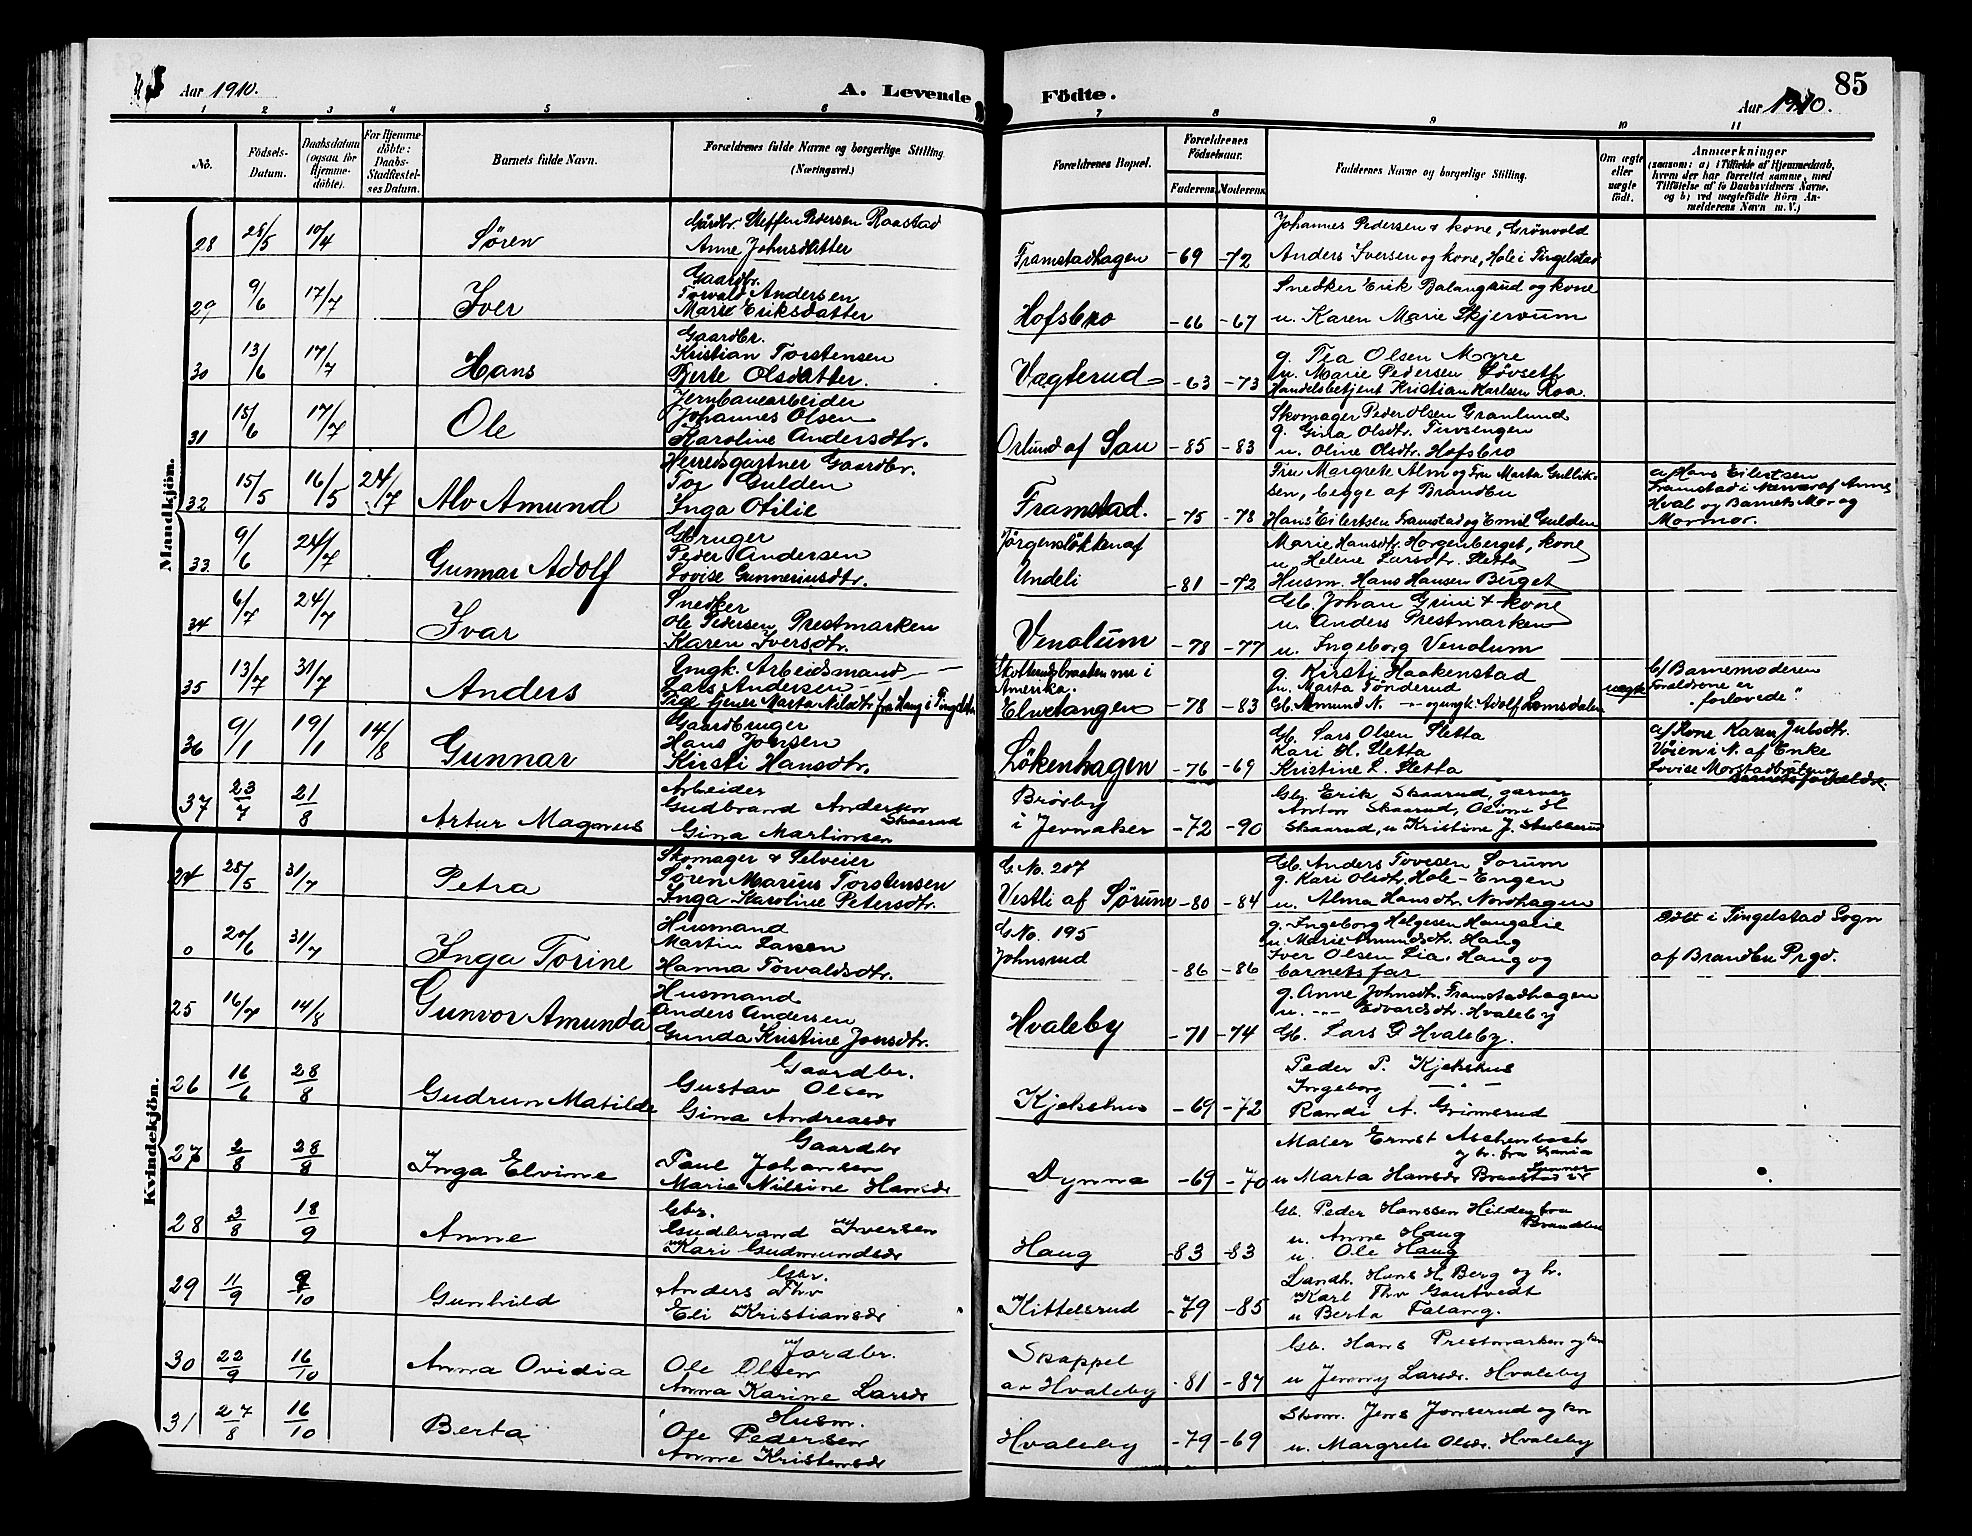 Aar 1910.
A. Levende Födte.
Aar 1910.
85
1 2 3 4 5 6 7 8 9 10 11
No.
Födsels-
Datum.
Daabsdatum
(ogsaa for
Hjemme-
döbte).
For Hjemme-
döbte:
Daabs-
Stadfæstel-
ses Datum.
Barnets fulde Navn.
Forældrenes fulde Navne og borgerlige Stilling.
(Næringsvei.)
Forældrenes Bopæl.
Forældrenes
Födselsaar.
Faderens.
Moderens.
Faddernes Navne og borgerlige Stilling.
Om ægte
eller
uægte
födt.
Anmærkninger
(saasom: a) i Tilfælde af Hjemmedaab,
hvem der har forrettet samme, med
Tilföielse af to Daabsvidners Navne,
og b) ved uægtefödte Börn An-
melderens Navn m.V.)
Mandkjön.
28 28/5 10/4 Søren
Gårdbr. Steffen Pedersen Raastad
Anne Johnsdatter
Framstadhagen -69 -72
Johannes Pedersen & kone, Grönvold
Anders Iversen og kone, Hole i Tingelstad
29 9/6 17/7 Iver
Gaardbr.
Torvald Andersen
Marie Eriksdatter
Hofsbro -66 -67
Snedker Erik Balangrud og kone
u. Karen Marie Skjervum
30 13/6 17/7 Hans
Gaardbr.
Kristian Torstensen
Berte Olsdatter.
Vagterud -63 -73
g. Tea Olsen Myre
u. Marie Pedersen Løvseth
Handelsbetjent Kristian Karlsen Roa.
31 15/6 17/7 Ole
Jernbanearbeider
Johannes Olsen
Karoline Andersdtr.
Orlund af Sau -85 -83
Skomager Peder Olsen Granlund
g. Gina Olsdtr. Tuvsengen
u. Oline Olsdtr. Hofsbro
32 15/5 16/5 24/7 Alv Amund
Herredsgartner Gaardbr.
Tor Gulden
Inga Otilie
Framstad. -75 -78
Fru Margrete Alm og Fru Marta Gullik-
sen, begge af Brandbu
Hans Eilertsen Framstad og Emil Gulden
af Hans Eilertsen
Framstad i Nærvær af Anne
Hval og Barnets Mor og
Mormor.
33. 9/6 24/7 Gunnar Adolf
Gbruger
Peder Andersen
Lovise Gunneriusdtr.
Jörgensløkken af
Undeli -81 -72
Marie Hansdtr. Horgenberget, kone
u. Helene Larsdtr. Sletta
Husm. Hans Hansen Berget
34 6/7 24/7 Ivar
Snedker
Ole Pedersen Prestmarken
Karen Iversdtr.
Venolum -78 -77
Gb. Johan Grini & kone
u. Anders Prestmarken
u. Ingeborg Venolum
35 13/7 31/7 Anders
Ungk. Arbeidsmand
Lars Andersen
Pige tjener Marta Nilsdtr. fra Haug i Tingelsta
Skotterudbraaten nu i
Amerika.
Elvetangen -78 -83
g. Kirsti Haakenstad
u. Marta Tønderud
Gb. Amund N. -"- og ungk. Adolf Lomsdalen
uægte
b/ Barnemoderen
Forældrene er
"forlovede".
36 9/1 19/1 14/8 Gunnar
Gaardbruger
Hans Jonsen
Kirsti Hansdtr.
Løkenhagen -76 -69
Gb. Lars Olsen Sletta
Kari H. Sletta
Kristine L. Sletta
af Kone Karen Julsdtr.
Vøien i N. af Enke
Lovise Morstadbråten og
Barnets forældre.
37 23/7 21/8 Artur Magnus
Arbeider
Gudbrand Anderson
Skaarud
Gina Martinsen
Brørby
i Jevnaker -72 -90
Gb. Erik Skaarud, garver
Anton Skaarud, Oline H
Skaarud, u Kristine J.
Kvindekjön.
24 28/5 31/7 Petra
Skomager & Selveier
Søren Marius Torstensen
Inga Karoline Petersdtr.
G No. 207
Vestli af Sørum -80 -84
Gb. Anders Tovesen Sorum
g. Kari Olsdtr. Hole-Engen
u. Alma Hansdtr. Nordhagen
0 20/6 31/7 Inga Torine
Husmand
Martin Larsen
Hanna Torvaldsdtr.
G No. 195
Johnsrud -86 -86
g. Ingeborg Helgesen Haugseie
u. Marie Amundsdtr. Haug
Iver Olsen Lia, Haug og
barnets far
Døbt i Tingelstad Sogn
af Brandbu Prgd.
25 16/7 14/8 Gunvor Amunda
Husmand
Anders Andersen
Gunda Kristine Jonsdtr.
Hvaleby -71 -74
g. Anne Johnsdtr. Framstadhagen
u. -"- Edvardsdtr. Hvaleby
Gb. Lars G Hvaleby.
26 16/6 28/8 Gudrun Matilde
Gaardbr.
Gustav Olsen
Gina Andreasdr
Kjekshus -69 -72
Peder P. Kjekshus
Ingeborg -"-
Randi A. Grimsrud
27 2/8 28/8 Inga Elvine
Gaardbr
Paul Johansen
Marie Nilsine Hansdr
Dynna -69 -70
Maler Ernst Aschenbach
og h. fra Grania
Lunner
u Marta Hansdr Braastad
28 3/8 18/9 Anne
Gbr.
Gudbrand Iversen
Kari Gudmundsdr
Haug -83 -83
Gb. Peder Hanssen Hilden fra
Brandbu
u. Anne Haug
u. Ole Haug
29 11/9 9/10 Gunhild
Gbr.
Anders Thv
Eli Kristiansdr
Kittelsrud -79 -85
Landh. Hans H Berg og h.
Karl Thv Gautvedt
u Berta Falang.
30 22/9 16/10 Anna Ovidia
Jordbr.
Ole Olsen
Anna Karine Larsdr
Skappel
av Hvaleby -81 -87
Gb. Hans Prestmarken og kn
u Jenny Larsdr. Hvaleby
31 27/8 16/10 Berta
Husm.
Ole Pedersen
Anne Kristensdr
Hvaleby -79 -69
Skom. Jens Jonserud og kn
u. Margrete Olsdr. Hvaleby